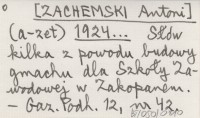 [ZACHEMSKI Antoni]
(a-zet) 1924... Słów
kilka z powodu budowy
gmachu dla Szkoły Za-
wodowej w Zakopanem.
— Gaz. Podh. 12, nr 42.